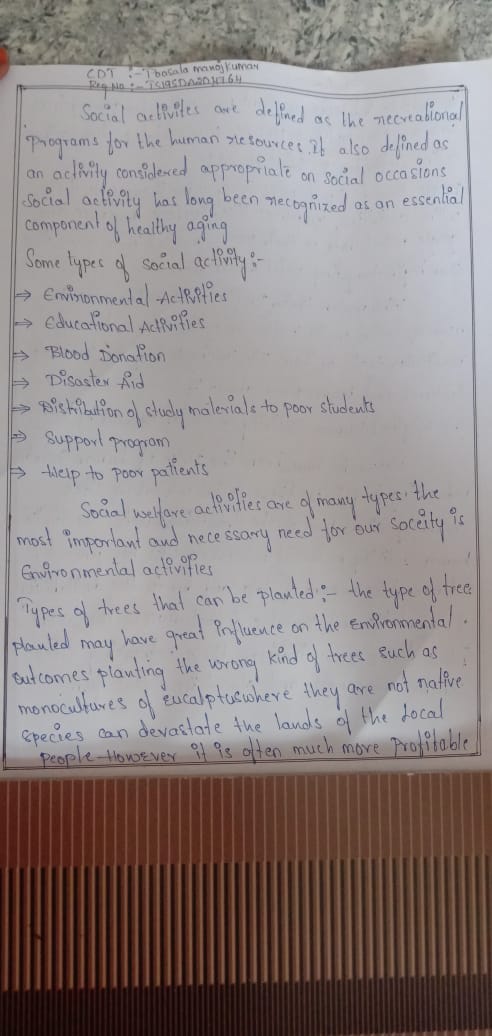 CDT :- Tbosala manojkumar
Reg No :- TS19SDA204764
Social activites are defined as the recreational
programs for the human resources. it also defined as
an activity considered appropriate on social occasions
Social activity has long been recognized as an essential
component of healthy aging
Some types of social activity:-
⇒ Environmental Activities
⇒ Educational Activities
⇒ Blood Donation
⇒ Disaster Aid
⇒ Distribution of study materials to poor students
⇒ Support program
⇒ Help to poor patients
Social welfare activities are of many types. the
most important and necessary need for our soceity is
Environmental activities
Types of trees that can be planted:- the type of tree
planted may have great influence on the Environmental.
outcomes planting the wrong kind of trees such as
monocultures of eucalptus where they are not native
species can devastate the lands of the local
people-However it is often much more profitable